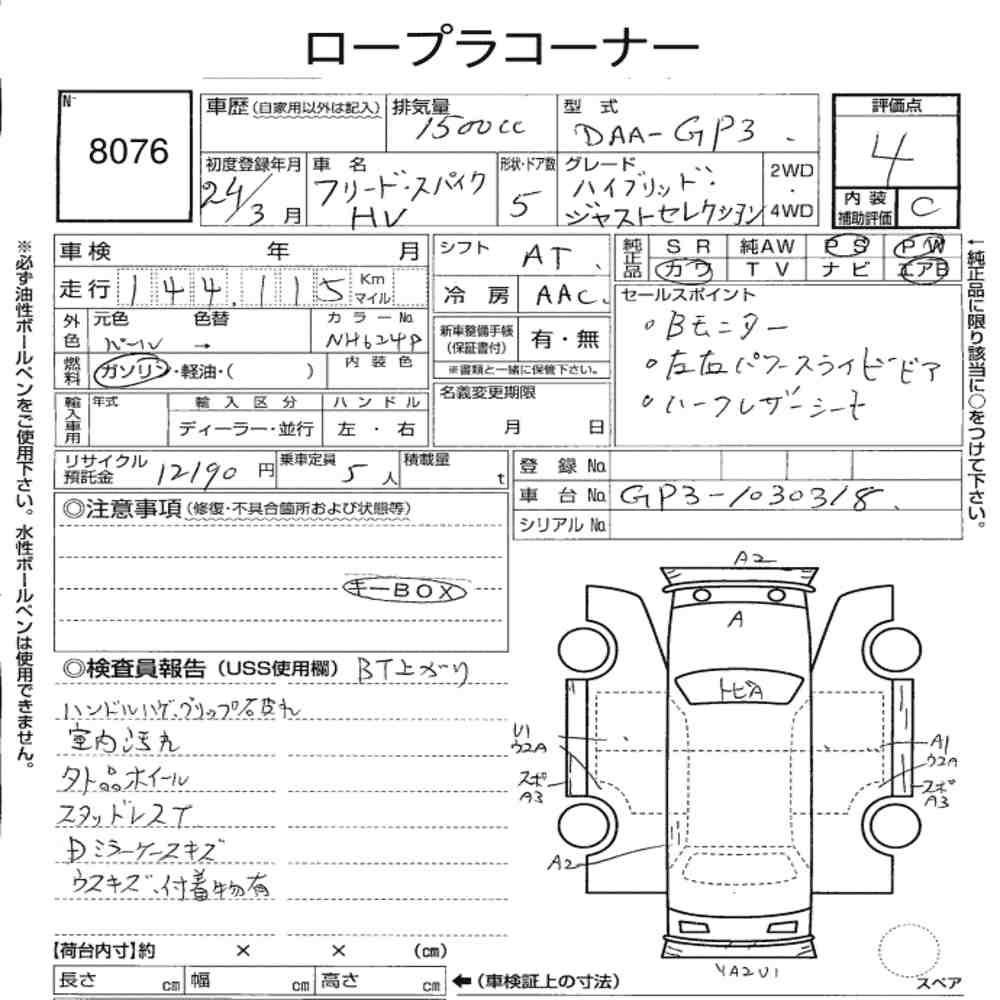 ロープラコーナー
No 8076
車歴(自家用以外は記入) 排気量 1500cc 型式 DAA-GP3
評価点 4
初度登録年月 24/3月 車名 フリード・スパイク HV 形状・ドア数 5 グレード ハイブリッド・ジャストセレクション 2WD・4WD
内装補助評価 C
車検 年 月
シフト AT
純正品 SR 純AW PS PW
カワ TV ナビ エアB
走行 144,115 Km マイル
冷房 AAC
セールスポイント
・Bモニター
・左右パワースライドドア
・ハーフレザーシート
外色 元色 パール 色替 → カラーNo. NH624P
新車整備手帳(保証書付) 有・無
※書類と一緒に保管下さい。
燃料 ガソリン・軽油・( ) 内装色
名義変更期限 月 日
輸入車用 年式 輸入区分 ハンドル
ディーラー・並行 左・右
リサイクル預託金 12190円 乗車定員 5人 積載量 t
登録No.
車台No. GP3-1030318
シリアルNo.
◎注意事項(修復・不具合箇所および状態等)
キーBOX
◎検査員報告(USS使用欄) BT上がり
ハンドルハゲ、グリップ
室内汚れ
外品ホイール
スタッドレスT
Dミラーケースキズ
ウスキズ、付着物有
A2
A
トビA
U1
ウ2A
スポ
A3
A2
A1
ウ2A
スポ
A3
YA2U1
【荷台内寸】約 × × (cm)
長さ cm 幅 cm 高さ cm ←(車検証上の寸法)
スペア
※必ず油性ボールペンをご使用下さい。水性ボールペンは使用できません。
←純正品に限り該当に○をつけて下さい。